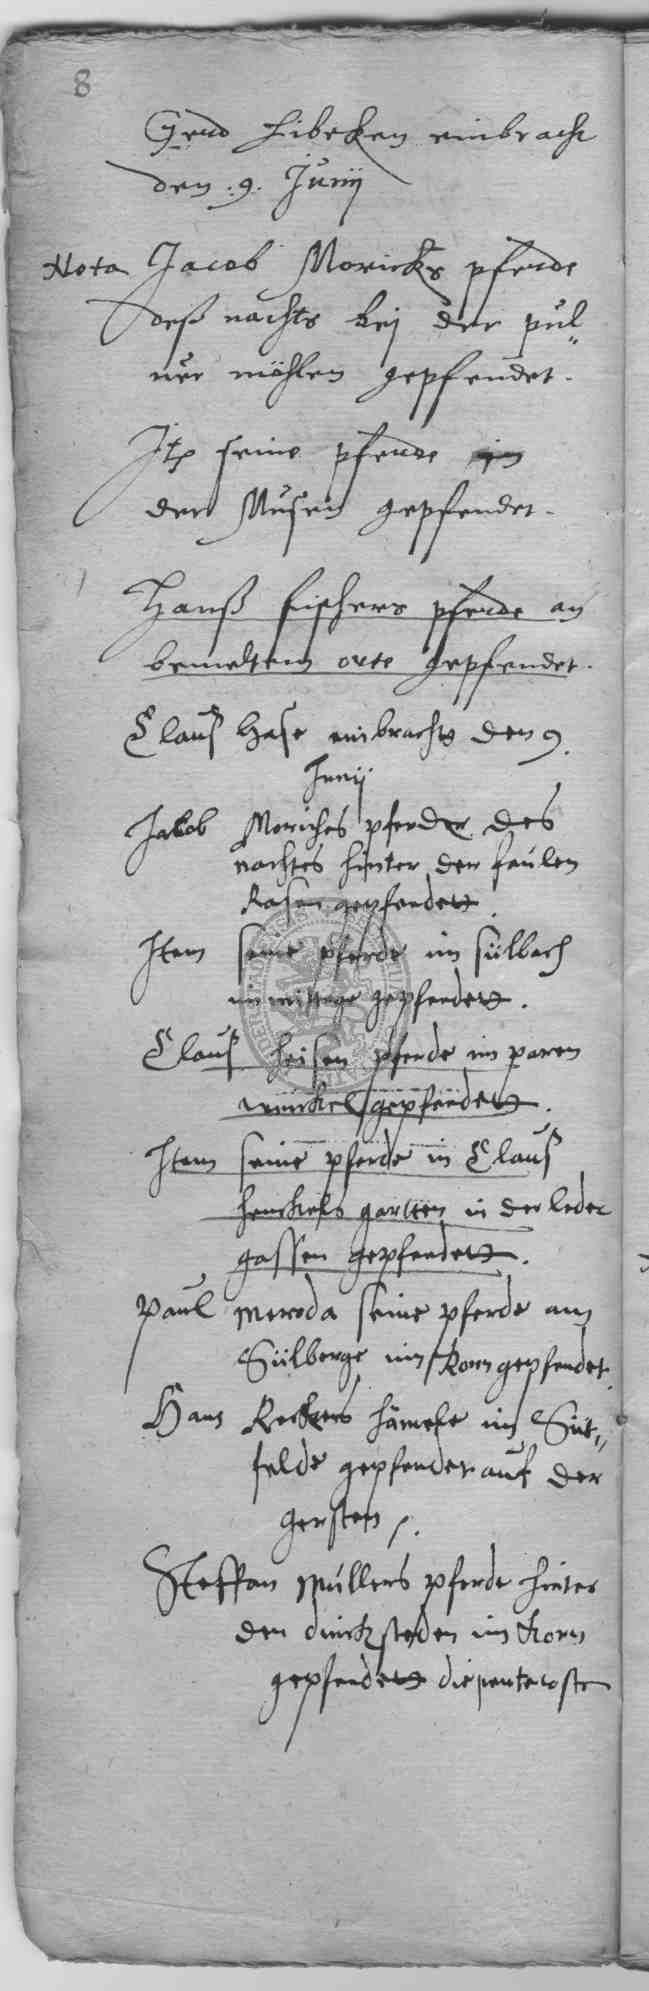 8
Libeken einbracht
den .9. Junij
Nota Jacob Moricks pferde
deß nachts bej der pul„
ner möhlen gepfendet.
Itz seine pferde in
der Musen gepfendet.
Hanß fischers pferde an
bemeltem orte gepfendet.
Clauß Hase einbrachts den 9.
Junij
Jacob Moriches pferder des
nachtes hinter der faulen
Rasen gepfendett
Item seine pferde im sulbach
im mittage gepfendett.
Clauß heisen pferde im paren
winckel gepfendett.
Item seine pferde in Clauß
henckels gartten in der leder
gassen gepfendett.
Paul meroda seine pferde am
Sülberge im Korn gepfendet
Hans hämele im Süt„
felde gepfendet auf der
gersten
Steffan Müllers pferde hinter
den im korn
gepfendett die penteroste